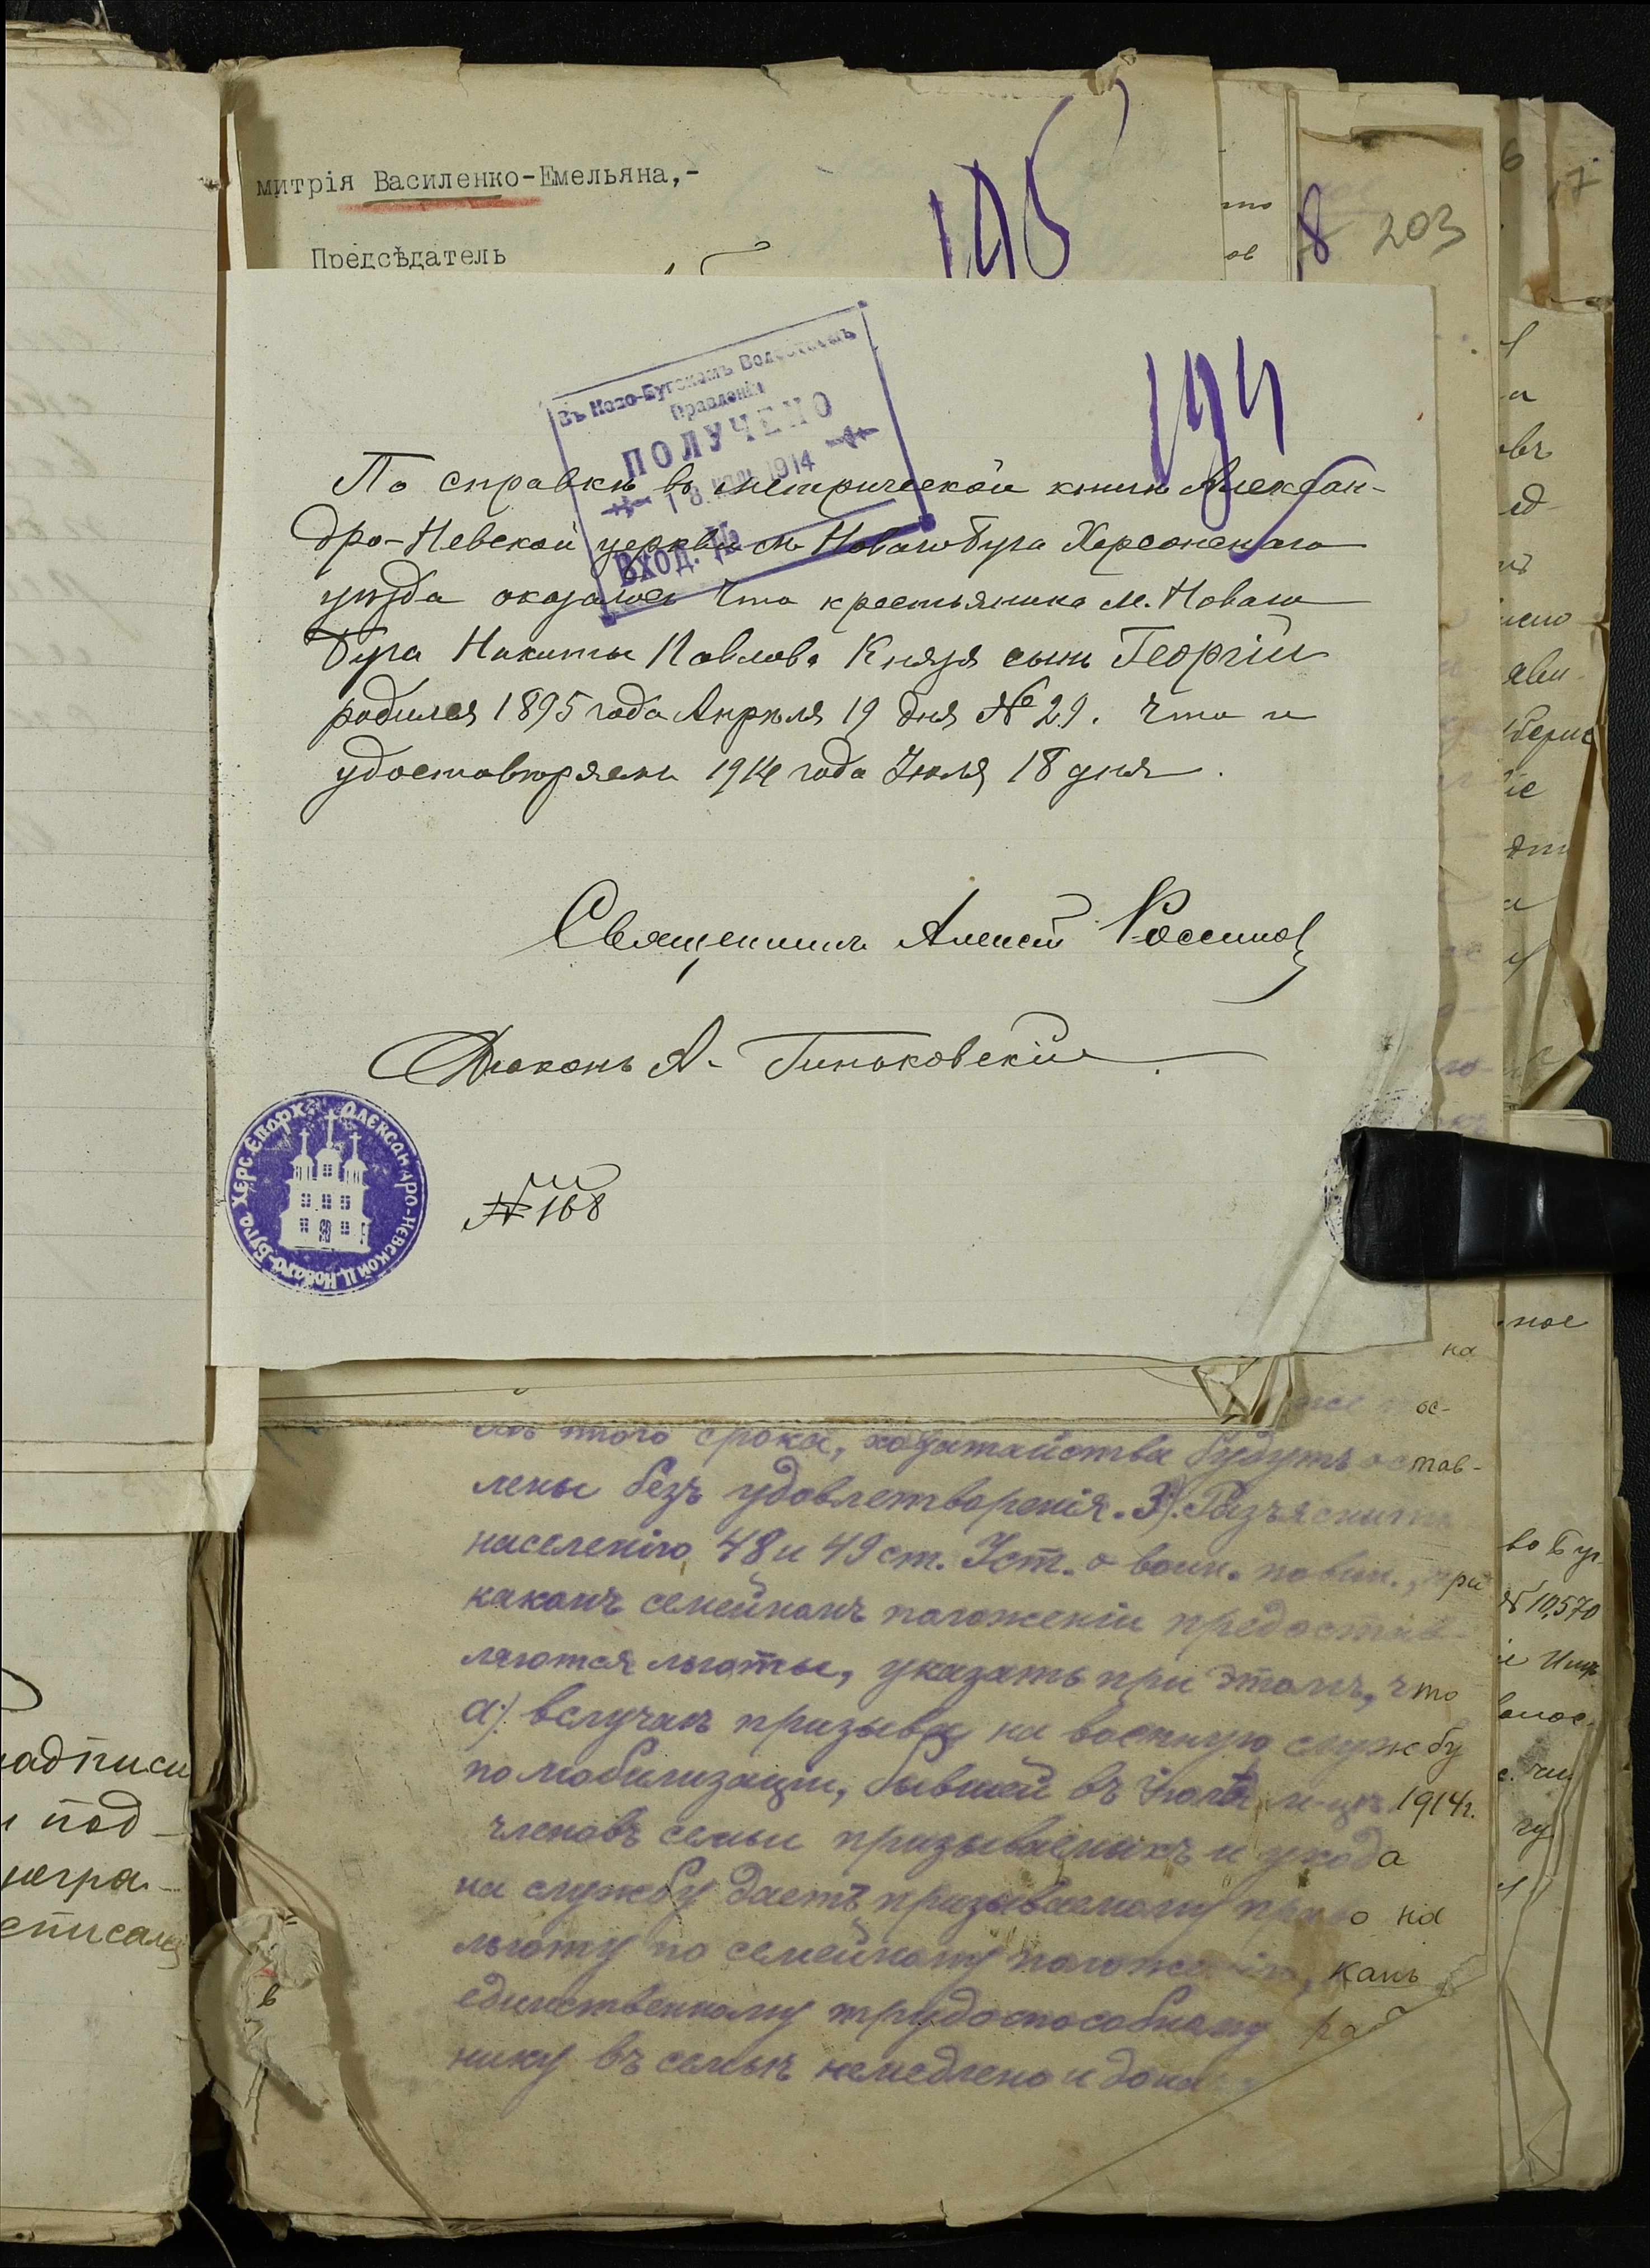 митрія Василенко-Емельяна,-
Предсѣдатель
195
8
203
6
17
194
Въ Ново-Бугскомъ Волостномъ
Правленіи
ПОЛУЧЕНО
18 1914
ВХОД. №
По справкѣ въ метрической книгѣ Алексан-
дро-Невской церкви м. Новаго Буга Херсонскаго
уѣзда оказалось что крестьянина м. Новаго
Буга Никиты Павлова Князя сынъ Георгій
родился 1895 года Апрѣля 19 дня № 29. Что и
удостовѣряемъ 1914 года Іюля 18 дня.
Священникъ Алексѣй
Діаконъ А. Гиньковскій
ХЕРС. ЕПАРХ. АЛЕКСАНДРО-НЕВСКОЙ Ц. Новаго-Буга
№ 168
на
ос-
этого срока, ходатайства будутъ остав-
лены безъ удовлетворенія. 3). Разъяснить
населенію 48 и 49 ст. Уст. о воин. повин., при
какомъ семейномъ положеніи предостав-
ляются льготы, указать при этомъ, что
а). вслучаѣ призыва на военную службу
по мобилизаціи, бывшей въ Іюлѣ м-цѣ 1914 г.
членовъ семьи призываемыхъ и ухода
на службу даетъ призываемому право на
льготу по семейному положенію, какъ
единственному трудоспособному
нику въ семьѣ немедлено и дока
надписи
под-
негра-
списал
в
ное
во Буг
№ 10,570